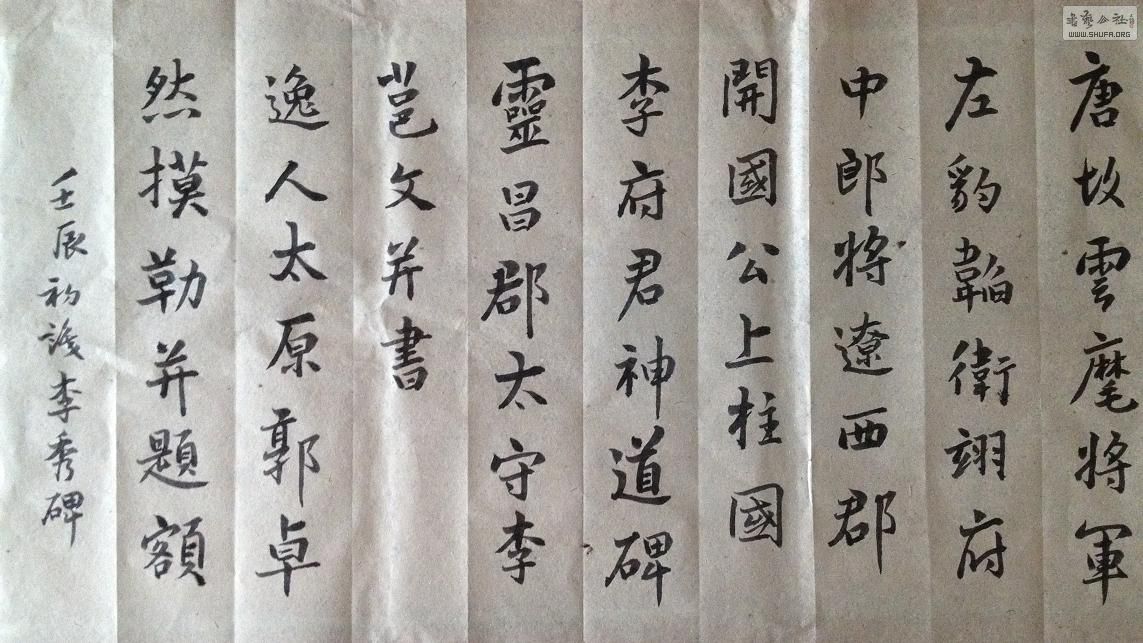 唐故雲麾將軍
左豹韜衛翊府
中郎將遼西郡
開國公上柱國
李府君神道碑
靈昌郡太守李
邕文并書
逸人太原郭卓
然摸勒并題額
壬辰初識李秀碑
書藝公社
WWW.SHUFA.ORG